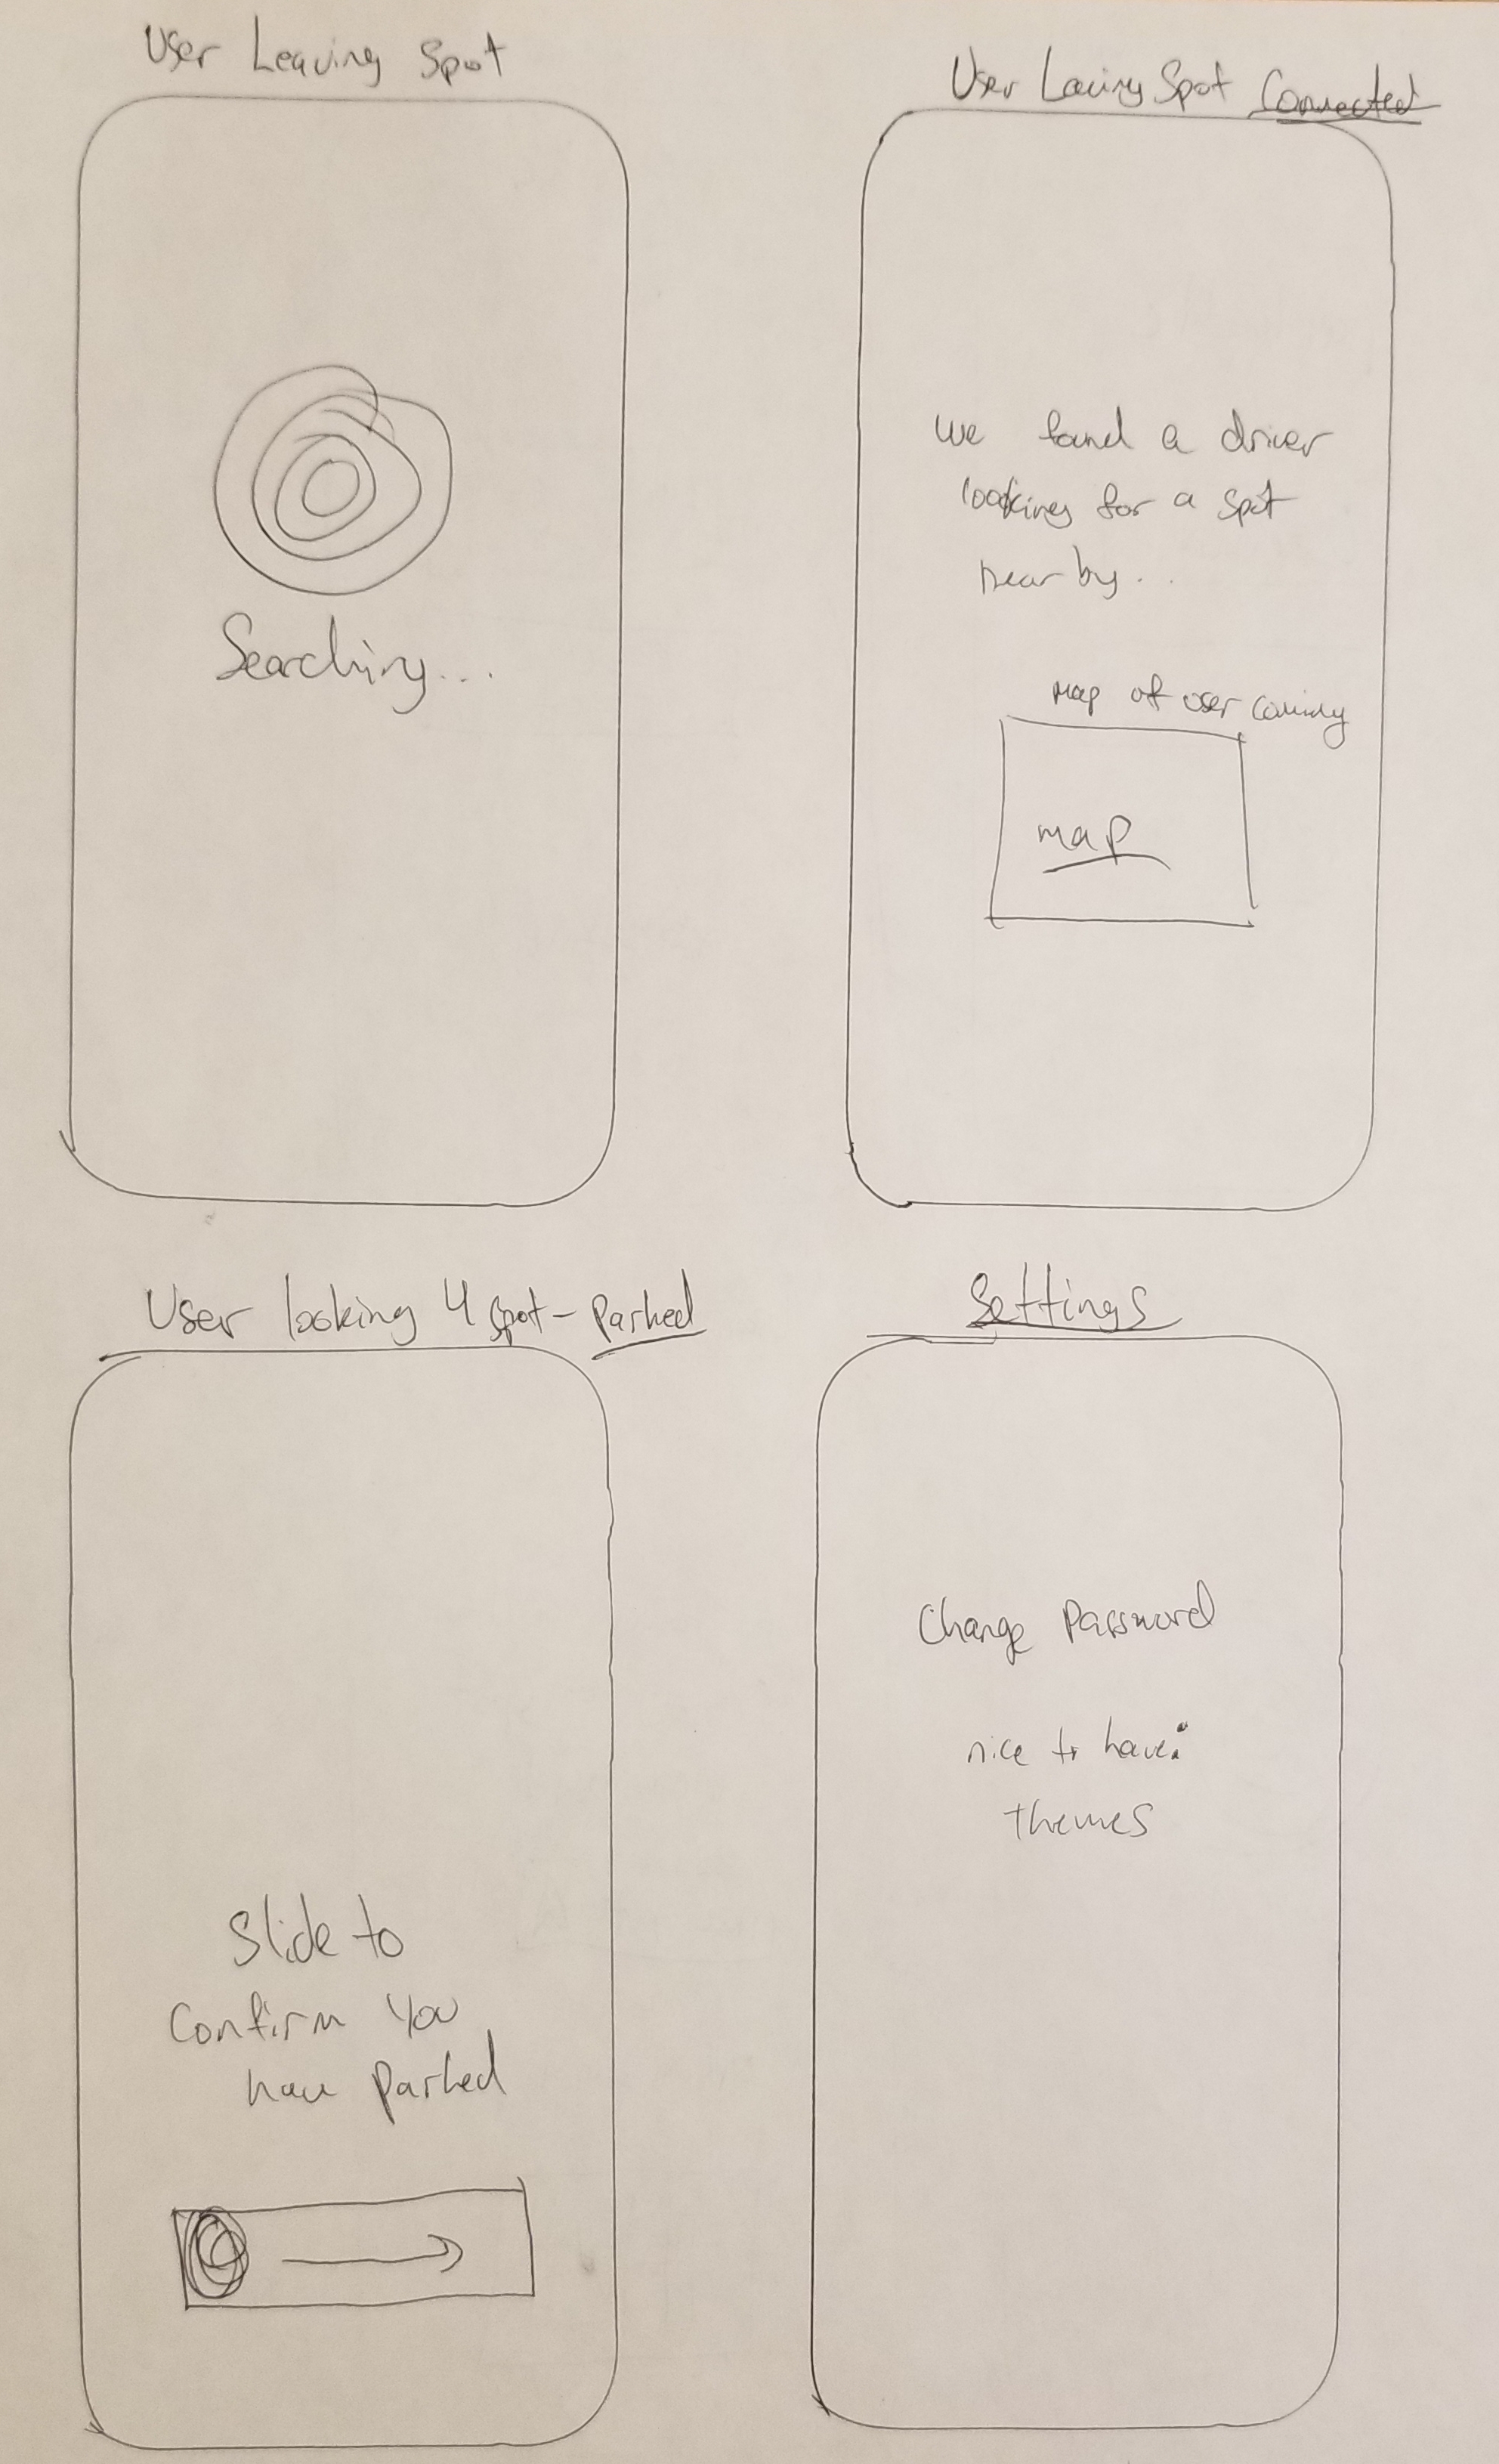 User Leaving Spot
Searching...
User Leaving Spot Connected
We found a driver
looking for a spot
near by...
map of user coming
map
User looking 4 spot - parked
Slide to
Confirm You
have parked
Settings
Change Password
nice to have:
themes